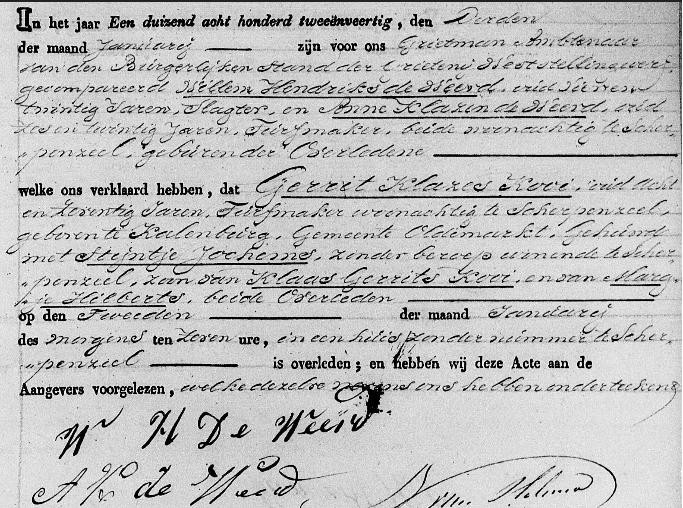 In het jaar Een duizend acht honderd tweeënveertig, den Derden
der maand Januarij zijn voor ons Grietman Ambtenaar
van den Burgerlijken Stand der Grietenij Weststellingwerf
gecompareerd Willem Hendriks de Weerd, oud
twintig Jaren, Slagter, en Anne Klazen de Weerd, oud
zes en twintig Jaren, Turfmaker, beide woonachtig te Scher-
„penzeel, gebüren der Overledene
welke ons verklaard hebben, dat Gerrit Klazes Kooi, oud acht
en zeventig Jaren, Turfmaker woonachtig te Scherpenzeel,
geboren te Kalenbürg, Gemeente Oldemarkt, Gehuwd
met Stijntje Jochems, zonder beroep wonende te Scher-
„penzeel, zoon van Klaas Gerrits Kooi, en van Marg-
je Hilberts, beide Overleden
op den Tweeden der maand Januarij
des morgens ten zeven ure, in een huis zonder nummer te Scher-
„penzeel is overleden; en hebben wij deze Acte aan de
Aangevers voorgelezen, welke dezelve nevens ons hebben onderteekend
W H De Weerd
A K de Weerd,